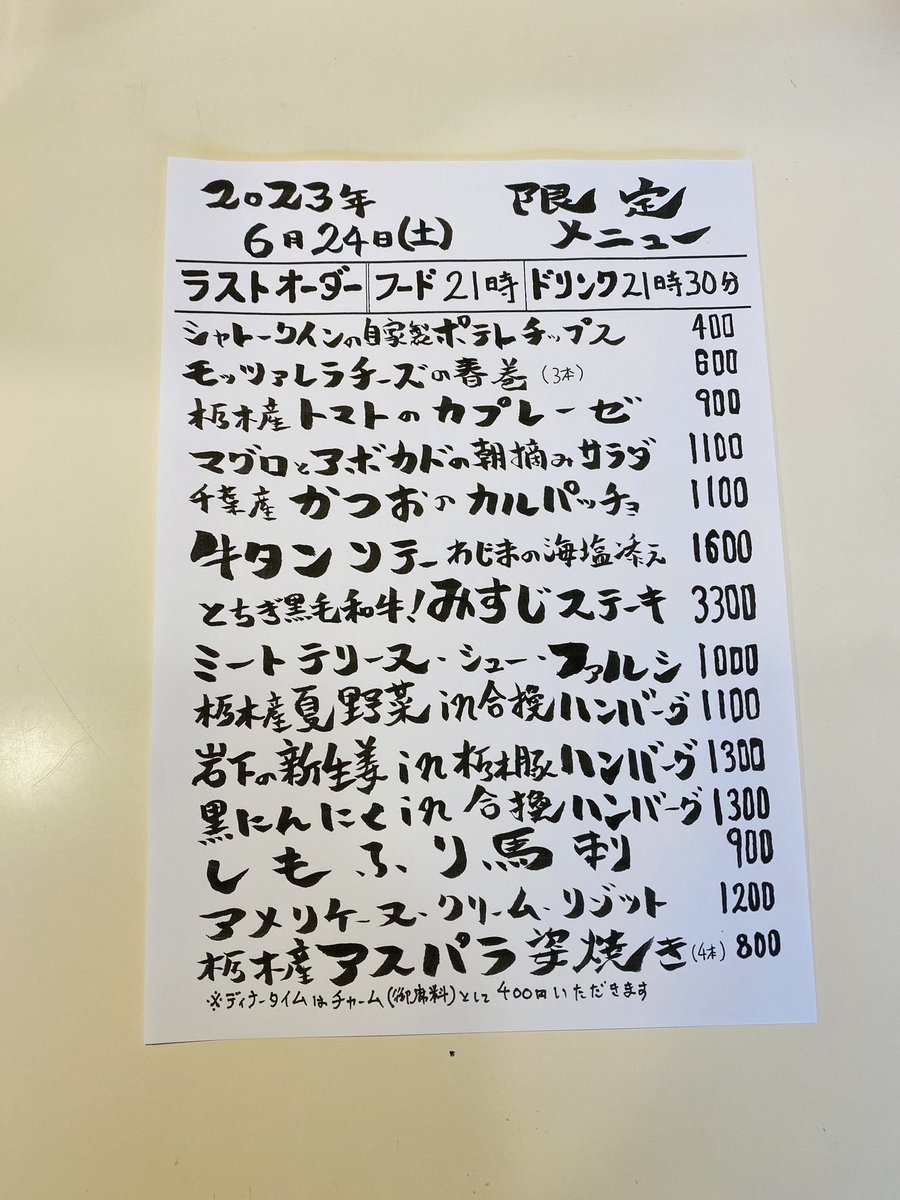 2023年 限定
6月24日(土) メニュー
ラストオーダー フード21時 ドリンク21時30分
シャトーワインの自家製ポテトチップス 400
モッツァレラチーズの春巻(3本) 600
栃木産トマトのカプレーゼ 900
マグロとアボカドの朝摘みサラダ 1100
千葉産かつおのカルパッチョ 1100
牛タンソテーわじまの海塩添え 1600
とちぎ黒毛和牛!みすじステーキ 3300
ミートテリーヌ・シュー・ファルシ 1000
栃木産夏野菜in合挽ハンバーグ 1100
岩下の新生姜in栃木豚ハンバーグ 1300
黒にんにくin合挽ハンバーグ 1300
しもふり馬刺 900
アメリケーヌ・クリーム・リゾット 1200
栃木産アスパラ姿焼き(4本) 800
※ディナータイムはチャーム(御席料)として400円いただきます